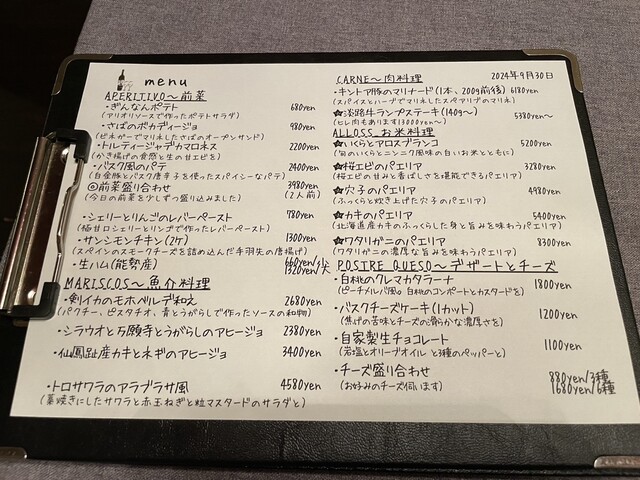 menu
APERITIVO～前菜
・ぎんなんポテト 680yen
(アリオリソースで作ったポテトサラダ)
・さばのボカディージョ 980yen
(ビネガーでマリネしたさばのオープンサンド)
・トルティージャデカマロネス 2200yen
(かき揚げの食感と生の甘エビを)
・バスク風のパテ 2400yen
(白金豚とバスク唐辛子を使ったスパイシーなパテ)
◎前菜盛り合わせ 3980yen
(今日の前菜を少しずつ盛り込みました) (2人前)
・シェリーとりんごのレバーペースト 780yen
(極甘口シェリーとリンゴで作ったレバーペースト)
・サンシモンチキン(2ケ) 1300yen
(スペインのスモークチーズを詰め込んだ手羽先の唐揚げ)
・生ハム(能勢産) 660yen/S
1320yen/L
MARISCOS～魚介料理
・剣イカのモホベルデ和え 2680yen
(パクチー、ピスタチオ、青とうがらしで作ったソースの和物)
・シラウオと万願寺とうがらしのアヒージョ 2380yen
・仙鳳趾産カキとネギのアヒージョ 3400yen
・トロサワラのアラブラサ風 4580yen
(藁焼きにしたサワラと赤玉ねぎと粒マスタードのサラダと)
CARNE～肉料理 2024年9月30日
・キントア豚のマリナード(1本、200g前後) 6180yen
(スパイスとハーブでマリネしたスペアリブのマリネ)
☆淡路牛ランプステーキ(140g～) 5380yen～
(ヒレ肉もあります13000yen～)
ALLOSS お米料理
☆いくらとアロスブランコ 5200yen
(旬のいくらとニンニク風味の白いお米とともに)
☆桜エビのパエリア 3280yen
(桜エビの甘みと香ばしさを堪能できるパエリア)
☆穴子のパエリア 4980yen
(ふっくらと炊き上げた穴子のパエリア)
☆カキのパエリア 5400yen
(北海道産カキのふっくらした身と旨みを味わうパエリア)
☆ワタリガニのパエリア 8300yen
(ワタリガニの濃厚な旨みを味わうパエリア)
POSTRE QUESO～デザートとチーズ
・白桃のクレマカタラーナ 1800yen
(ピーチメルバ風。白桃のコンポートとカスタードを)
・バスクチーズケーキ(1カット) 1200yen
(焦げの苦味とチーズの滑らかな濃厚さを)
・自家製生チョコレート 1100yen
(岩塩とオリーブオイルと3種のペッパーと)
・チーズ盛り合わせ 880yen/3種
(お好みのチーズ伺います) 1680yen/6種